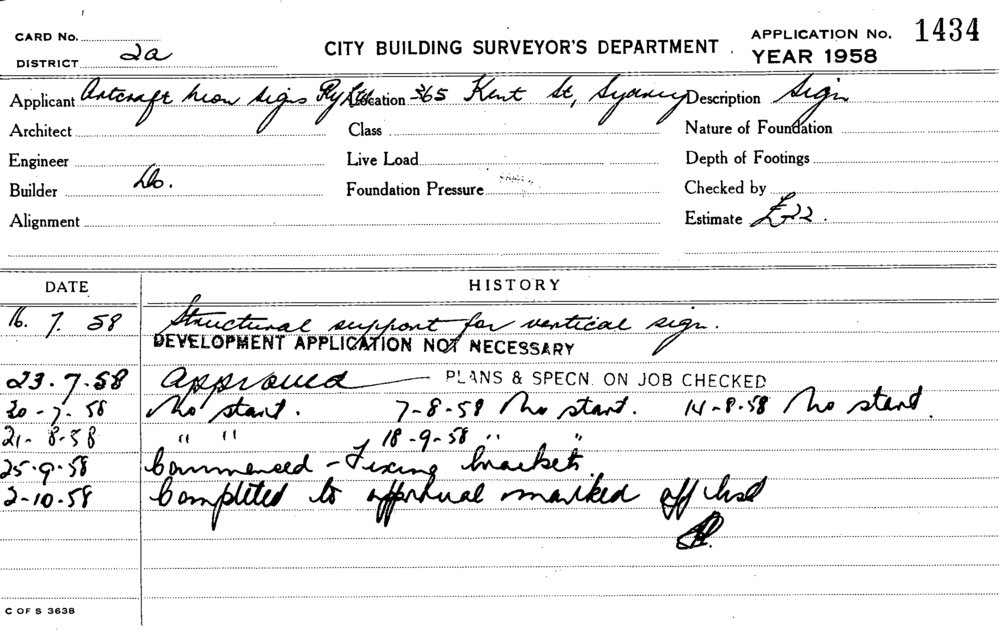 CARD No.
DISTRICT 2a
CITY BUILDING SURVEYOR'S DEPARTMENT
APPLICATION No. 1434
YEAR 1958
Applicant Artcraft Neon Signs Pty Ltd Location 365 Kent St, Sydney Description Sign
Architect Class Nature of Foundation
Engineer Live Load Depth of Footings
Builder Do. Foundation Pressure Checked by
Alignment Estimate £22.
DATE HISTORY
16. 7. 58 Structural support for vertical sign.
DEVELOPMENT APPLICATION NOT NECESSARY
23.7.58 Approved — PLANS & SPECN. ON JOB CHECKED
30-7-58 No start. 7-8-58 No start. 14-8-58 No start.
21-8-58 " " 18-9-58 " "
25.9.58 Commenced - Fixing brackets.
2-10-58 Completed to approval marked off list
C OF S 3638